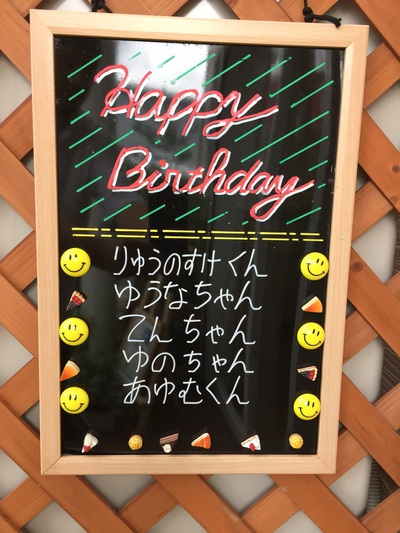 Happy
Birthday
りゅうのすけくん
ゆうなちゃん
てんちゃん
ゆのちゃん
あゆむくん